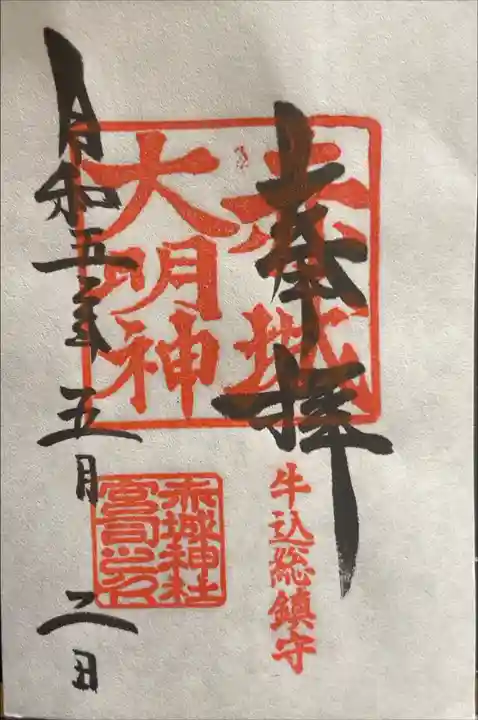 奉拝
赤城
大明神
牛込総鎮守
令和五年五月二日
赤城神社
宮司之印